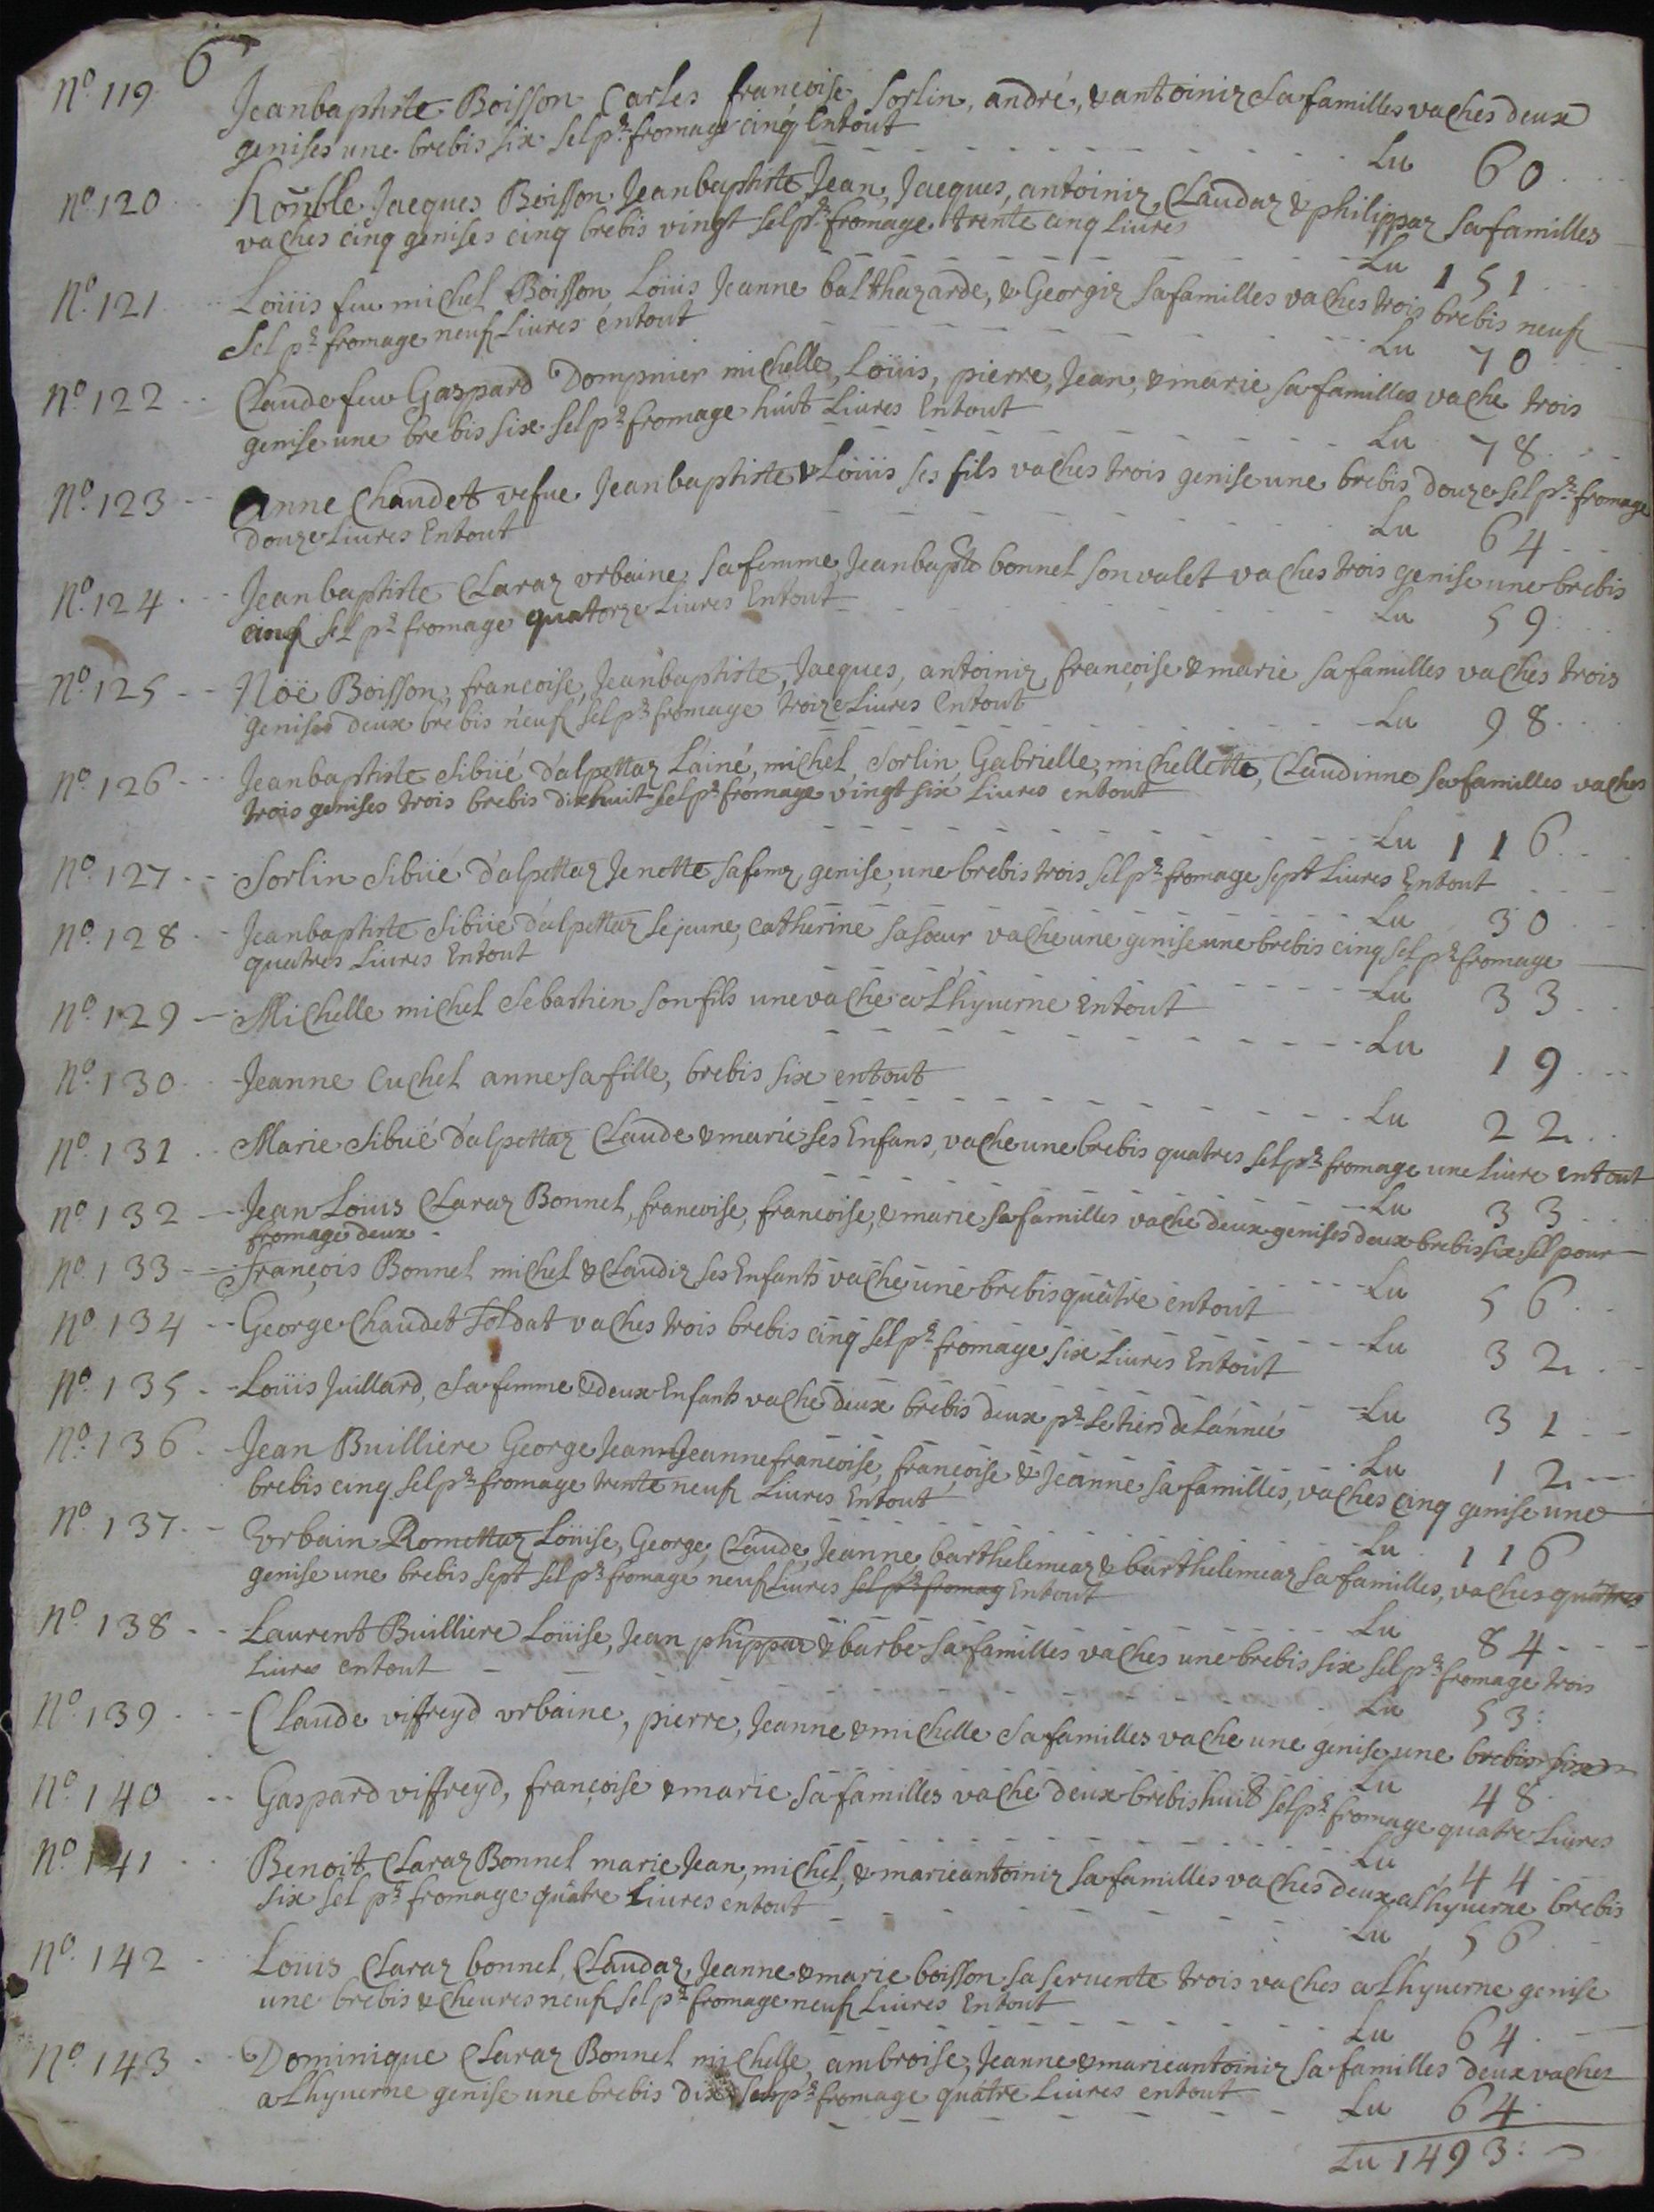 6
Nº 119 Jeanbaptiste Boisson Carles françoise, Sorlin, andré, & antoiniz sa familles vaches deux
genises une brebis six sel pr fromage cinq Entout Lu 60
nº 120 honble Jacques Boisson Jeanbaptiste, Jean, Jacques, antoiniz, Claudaz & philippaz sa familles
vaches cinq genises cinq brebis vingt sel pr fromage trente cinq Liures Lu 151
Nº 121 Loüis feu michel Boisson Loüis Jeanne balthazarde, & Georgiz sa familles vaches trois brebis neuf
Sel pr fromage neuf Liures entout Lu 70
Nº 122 Claude feu Gaspard Dompnier michelle, Loüis, pierre, Jean, & marie sa familles vache trois
genise une brebis six sel pr fromage huit Liures Entout Lu 78
Nº 123 Anne Chaudet vefue Jeanbaptiste & Loüis ses fils vaches trois genise une brebis douze sel pr fromage
douze Liures Entout Lu 64
Nº 124 Jeanbaptiste Claraz vrbaine sa femme, Jeanbapte bonnel son valet vaches trois genise une brebis
cinq sel pr fromage quatorze Liures Entout Lu 59
Nº 125 Nöe Boisson, francoise, Jeanbaptiste, Jacques, antoiniz, françoise & marie sa familles vaches trois
genises deux brebis neuf sel pr fromage treize Liures Entout Lu 98
Nº 126 Jeanbaptiste Sibüé dalpettaz Láiné, michel, Sorlin, Gabrielle, michellette, Claudinne sa familles vaches
trois genises trois brebis dixhuit sel pr fromage vingt six Liures entout Lu 116
Nº 127 Sorlin Sibüé dalpettaz Jenotte sa femz genise, une brebis trois sel pr fromage sept Liures Entout
Lu 30
Nº 128 Jeanbaptiste Sibüé dalpettaz le jeune, catherine sa sœur vache une genise une brebis cinq sel pr fromage
quatres Liures Entout Lu 33
Nº 129 Michelle michel Sebastien son fils une vache a Lhyuerne Entout
Lu 19
Nº 130 Jeanne Cuchel anne sa fille, brebis six entout
Lu 22
Nº 131 Marie Sibüé dalpettaz Claude & marie ses Enfans, vache une brebis quatres sel pr fromage une Liure entout
Lu 33
Nº 132 Jean Loüis Claraz Bonnel, francoise, francoise, & marie sa familles vache deux genises deux brebis six sel pour
fromage deux Lu 56
Nº 133 François Bonnel michel & Claudiz ses Enfants vache une brebis quatre entout
Lu 32
Nº 134 George Chaudet Soldat vaches trois brebis cinq sel pr fromage six Liures Entout
Lu 31
Nº 135 Loüis Juillard, sa femme & deux Enfants vache deux brebis deux pr Le tiers de Lánnéé
Lu 12
Nº 136 Jean Builliere George Jeann Jeannefrancoise, françoise & Jeanne sa familles, vaches cinq genise une
brebis cinq sel pr fromage trente neuf Liures Entout Lu 116
Nº 137 Vrbain Romettaz Loüise, George, Claude, Jeanne, barthelemeaz & barthelemeaz sa familles, vaches quatres
genise une brebis sept sel pr fromage neuf Liures sel pr fromag Entout Lu 84
Nº 138 Laurent Builliere Loüise, Jean phippaz & barbe sa familles vaches une brebis six sel pr fromage trois
Liures entout Lu 53
Nº 139 Claude viffreyd vrbaine, pierre, Jeanne & michelle sa familles vache une genise une brebis six
Lu 48
Nº 140 Gaspard viffreyd, françoise & marie sa familles vache deux brebis huit sel pr fromage quatre Liures
Lu 44
Nº 141 Benoit Claraz Bonnel marie Jean, michel, & marieantoiniz sa familles vaches deux a Lhyuerne brebis
six sel pr fromage quatre Liures entout Lu 56
Nº 142 Loüis Claraz bonnel, Claudaz, Jeanne & marie boisson sa seruente trois vaches a Lhyuerne genise
une brebis & cheures neuf sel pr fromage neuf Liures Entout Lu 64
Nº 143 Dominique Claraz Bonnel michelle ambroise, Jeanne & marieantoiniz sa familles deux vaches
a Lhyuerne genise une brebis dix sel pr fromage quatre Liures entout Lu 64
Lu 1493